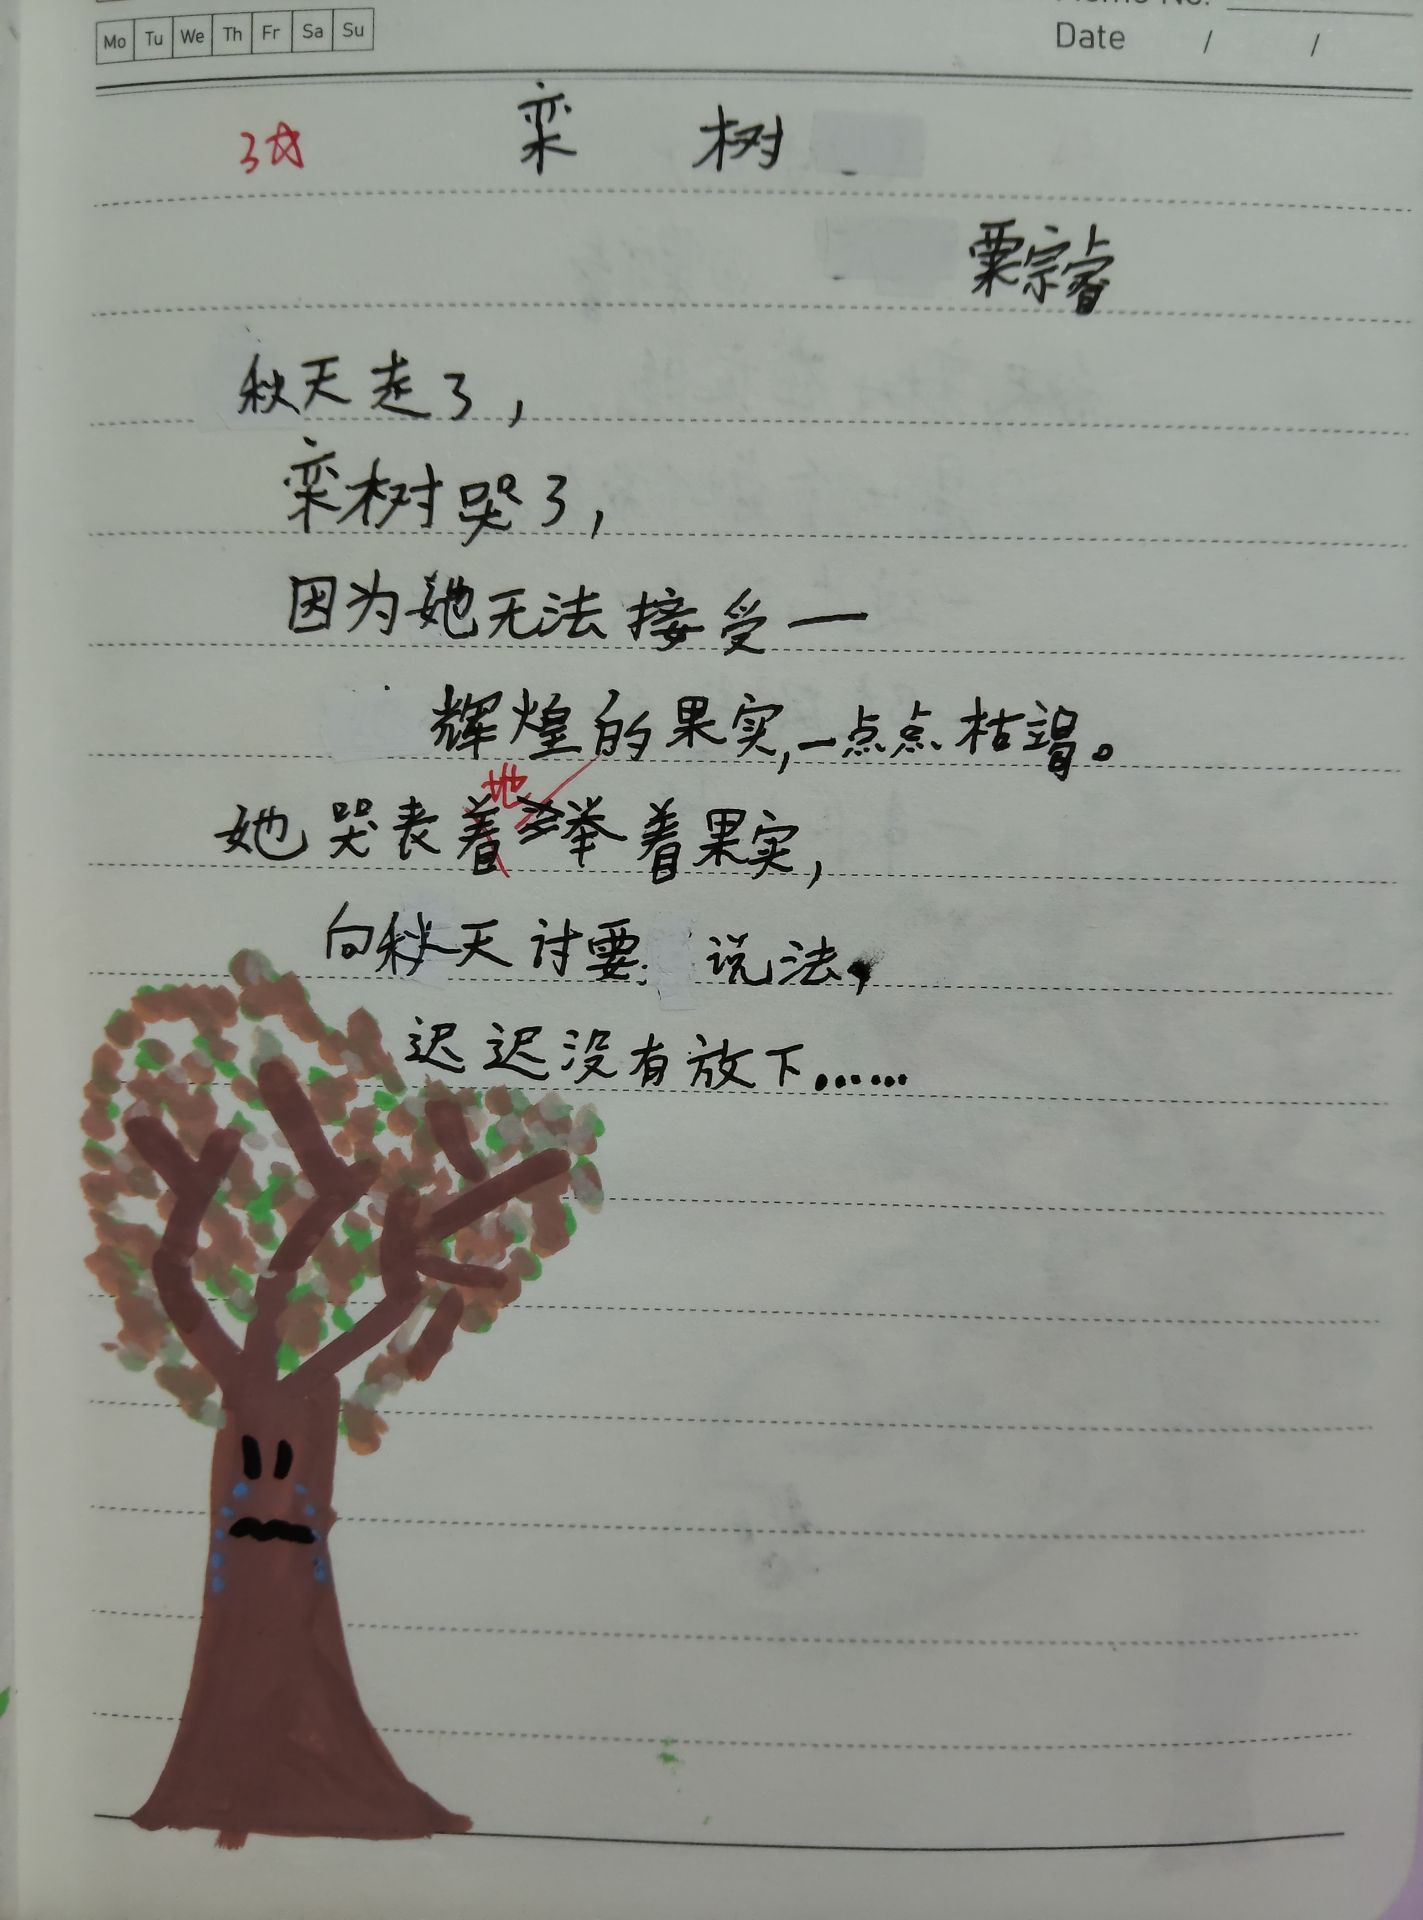 Mo Tu We Th Fr Sa Su
Date / /
3☆
栾 树
粟宗睿
秋天走了，
栾树哭了，
因为她无法接受一
辉煌的果实，一点点枯竭。
地
她哭丧着举着果实，
向秋天讨要说法，
迟迟没有放下……